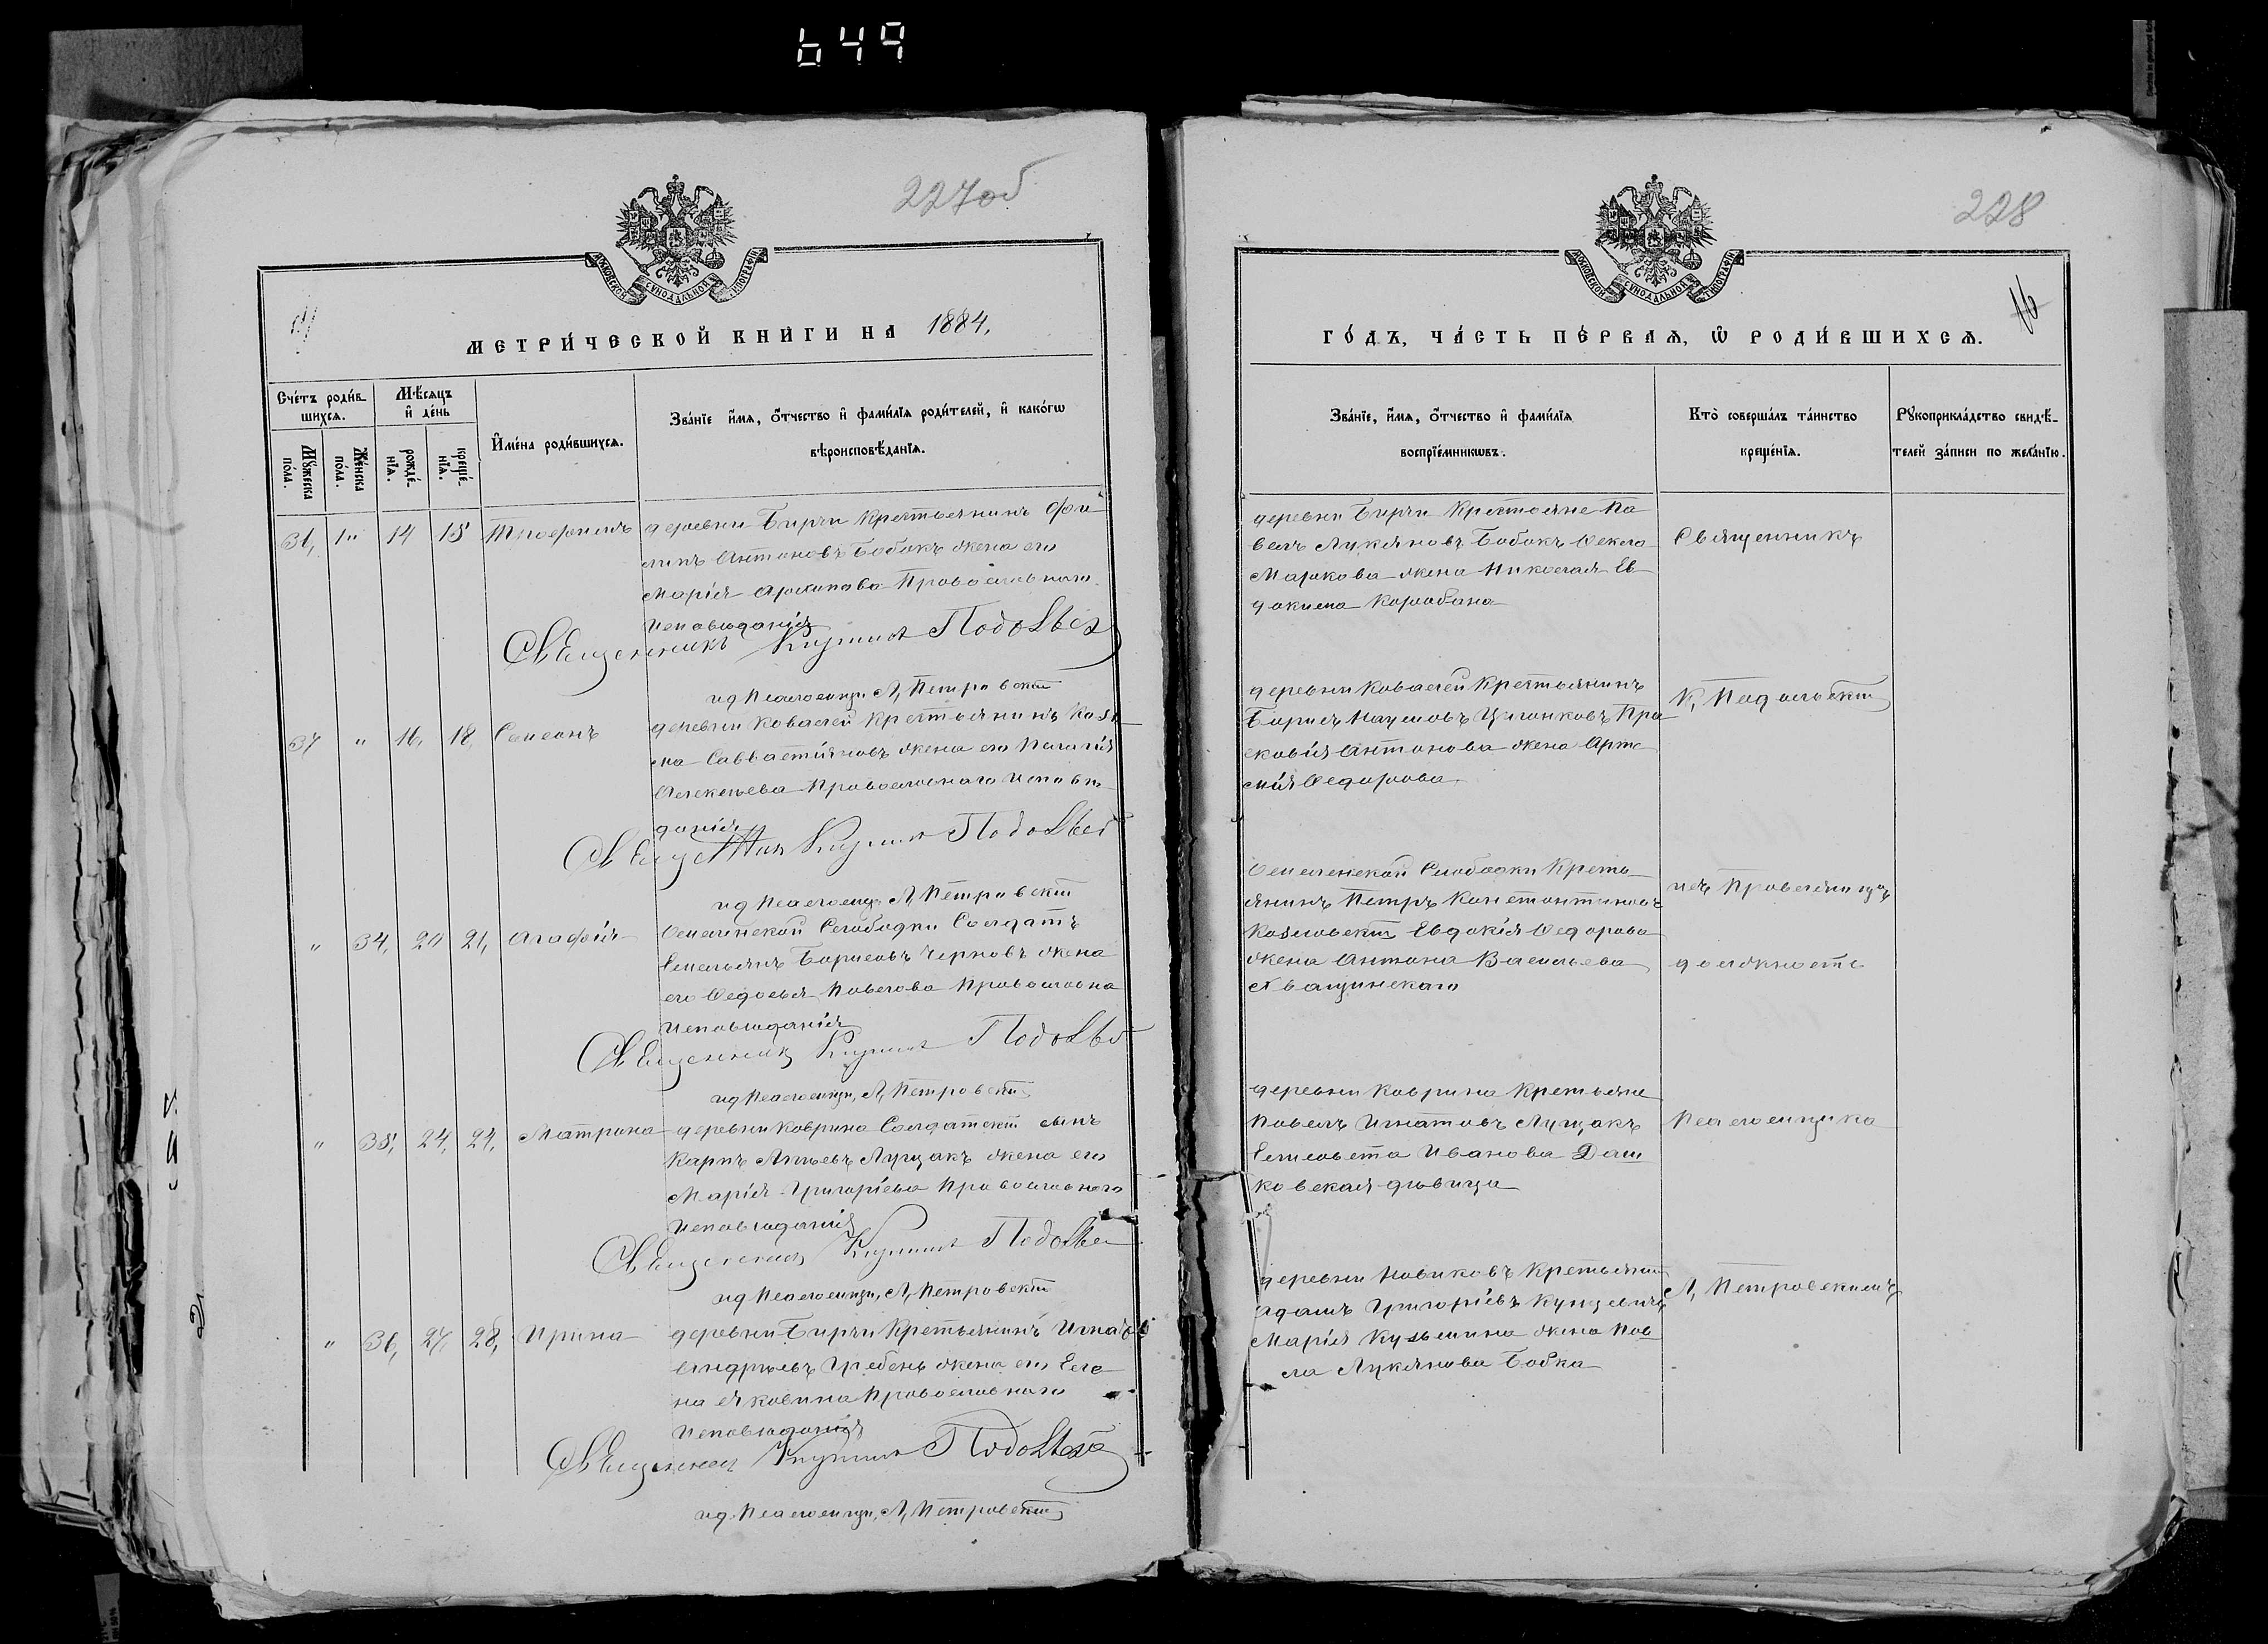 649
227об
МОСКОВСКОЙ СѴНОДАЛЬНОЙ ТИПОГРАФІИ
МЕТРИЧЕСКОЙ КНИГИ НА 1884,
Счетъ родившихся.
Мужеска пола.
Женска пола.
Мѣсяцъ и день
рожденія.
крещенія.
Имена родившихся.
Званіе имя, отчество и фамилія родителей, и какогѡ
вѣроисповѣданія.
36, " 14 15 Трофимъ
деревни Бирчи Крестьянинъ Фи
липъ Антоновъ Бобокъ жена его
Марія Архипова Православнаго
Исповѣданія
Священникъ Подольск
ид Псаломщ. Л, Петровскій
37 " 16, 18, Самсонъ
деревни Ковалей Крестьянинъ Козь
ма Савватіяновъ жена его Пелагія
Алексѣева Православнаго Исповѣ
данія
Священник Подольск
ид Псаломщ. Л, Петровскій
" 34, 20 21, Агафія
Слободки Солдатъ
Емельянъ Борисовъ Черновъ жена
его Федосья Павлова Православна
Исповѣданія
Священник Подольск
ид Псаломщ, Л, Петровскій
" 35, 24, 24, Матрона
деревни Коврина Солдатскій сынъ
Карпъ Лущакъ жена его
Марія Григоріева Православнаго
Исповѣданія
Священник Подольск
ид Псаломщ, Л, Петровскій
" 36, 27, 28, Ирина
деревни Бирчи Крестьянинъ Игнатъ
Андрѣевъ Гребень жена его Еле
на Яковлина Православнаго
Исповѣданія
Священник Подольскій
ид. Псаломщ, Л, Петровскій
228
16
МОСКОВСКОЙ СѴНОДАЛЬНОЙ ТИПОГРАФІИ
ГОДЪ, ЧАСТЬ ПЕРВАЯ, Ѡ РОДИВШИХСЯ.
Званіе, имя, отчество и фамилія
воспріемникѡвъ.
Кто совершалъ таинство
крещенія.
Рукоприкладство свидѣ-
телей записи по желанію.
деревни Бирчи Крестьяне Па
велъ Лукяновъ Бобокъ Фекла
Маркова жена Николая Ев
докима Карабана
Священникъ
деревни Ковалей Крестьянинъ
Борисъ Наумовъ Цыганковъ Пра
сковія Антонова жена Арте
мія Федорова
К, Подольскій
Слободки Кресть
янинъ Петръ Константиновъ
Козловскій Евдокія Федорова
жена Антона Васильева
должность
деревни Коврина Крестьяне
Павелъ Игнатовъ Лущакъ
Елисовета Иванова Даш
ковская дѣвица
Псаломщика
деревни Новиковъ Крестьянин
Адамъ Григоріевъ Куцевичъ
Марія Кузьмина жена Пав
ла Лукянова Бобка
Л, Петровскимъ